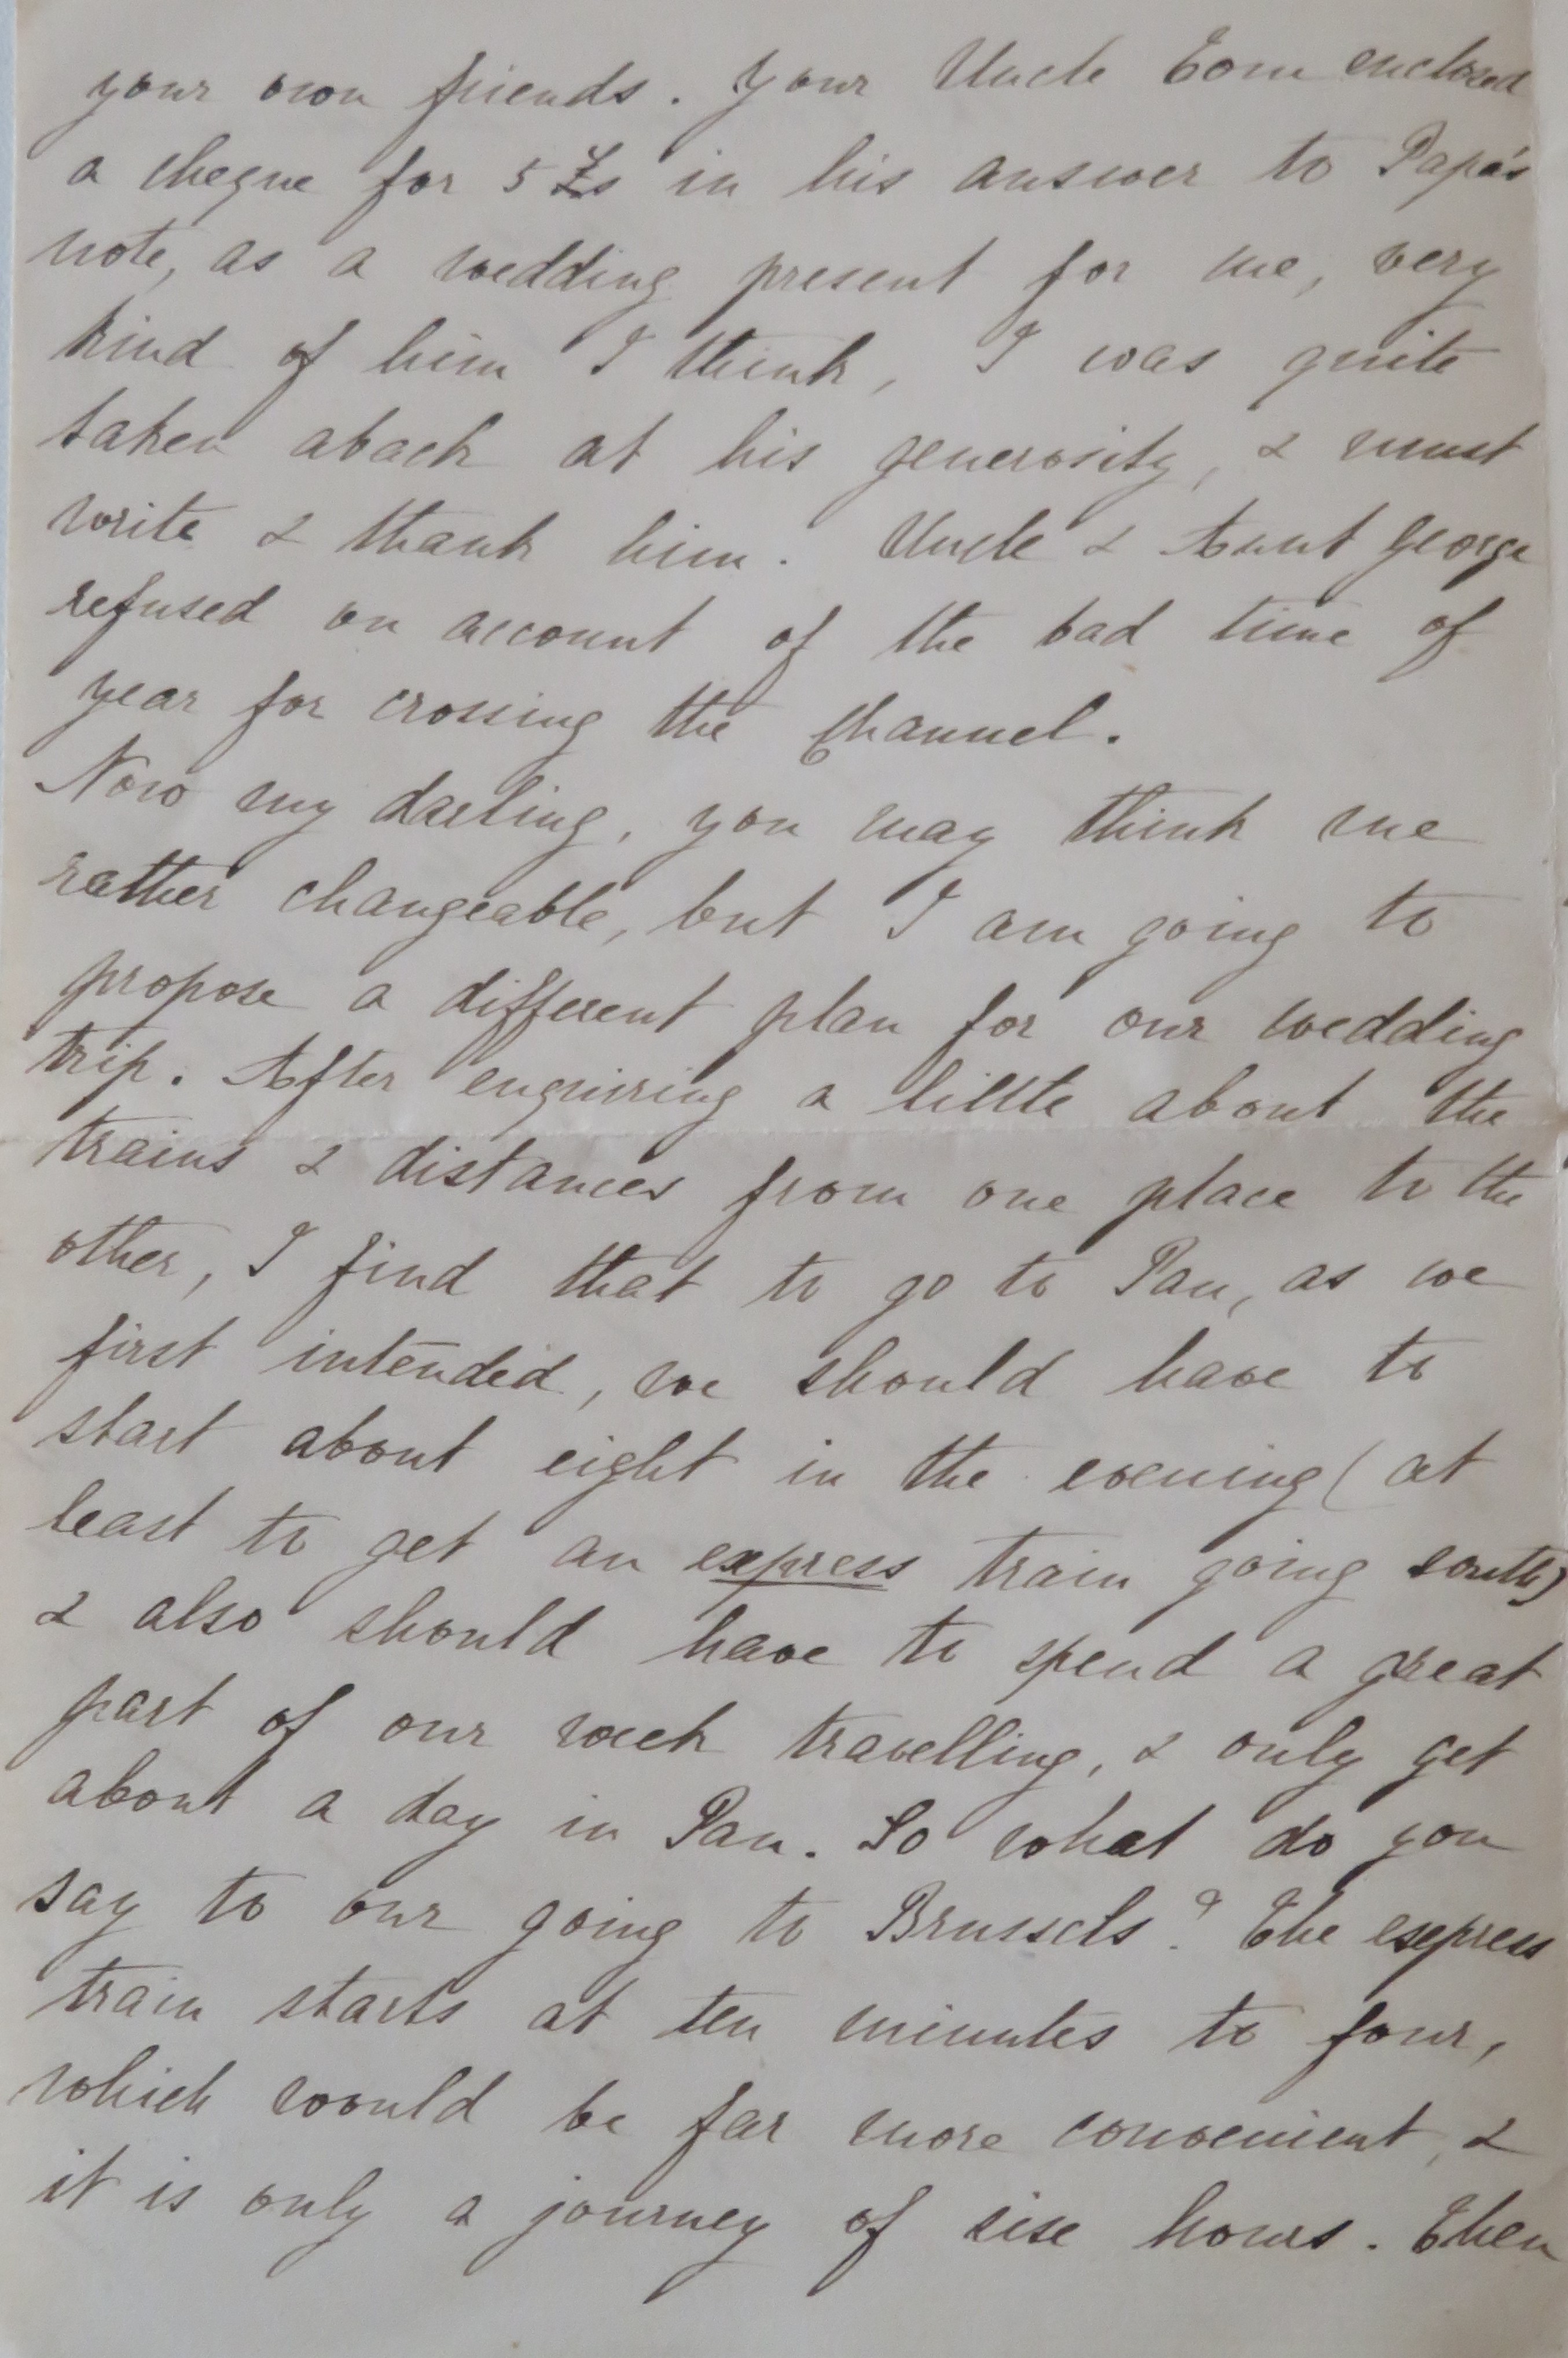 your own friends. Your Uncle Tom enclosed
a cheque for 5 £s in his answer to Papa's
note, as a wedding present for me, very
kind of him I think, I was quite
taken aback at his generosity, & must
write & thank him. Uncle & Aunt George
refused on account of the bad time of
year for crossing the Channel.
Now my darling, you may think me
rather changeable, but I am going to
propose a different plan for our wedding
trip. After enquiring a little about the
trains & distances from one place to the
other, I find that to go to Pau, as we
first intended, we should have to
start about eight in the evening (at
least to get an express train going south)
& also should have to spend a great
part of our week travelling, & only get
about a day in Pau. So what do you
say to our going to Brussels? The express
train starts at ten minutes to four,
which would be far more convenient, &
it is only a journey of six hours. Then